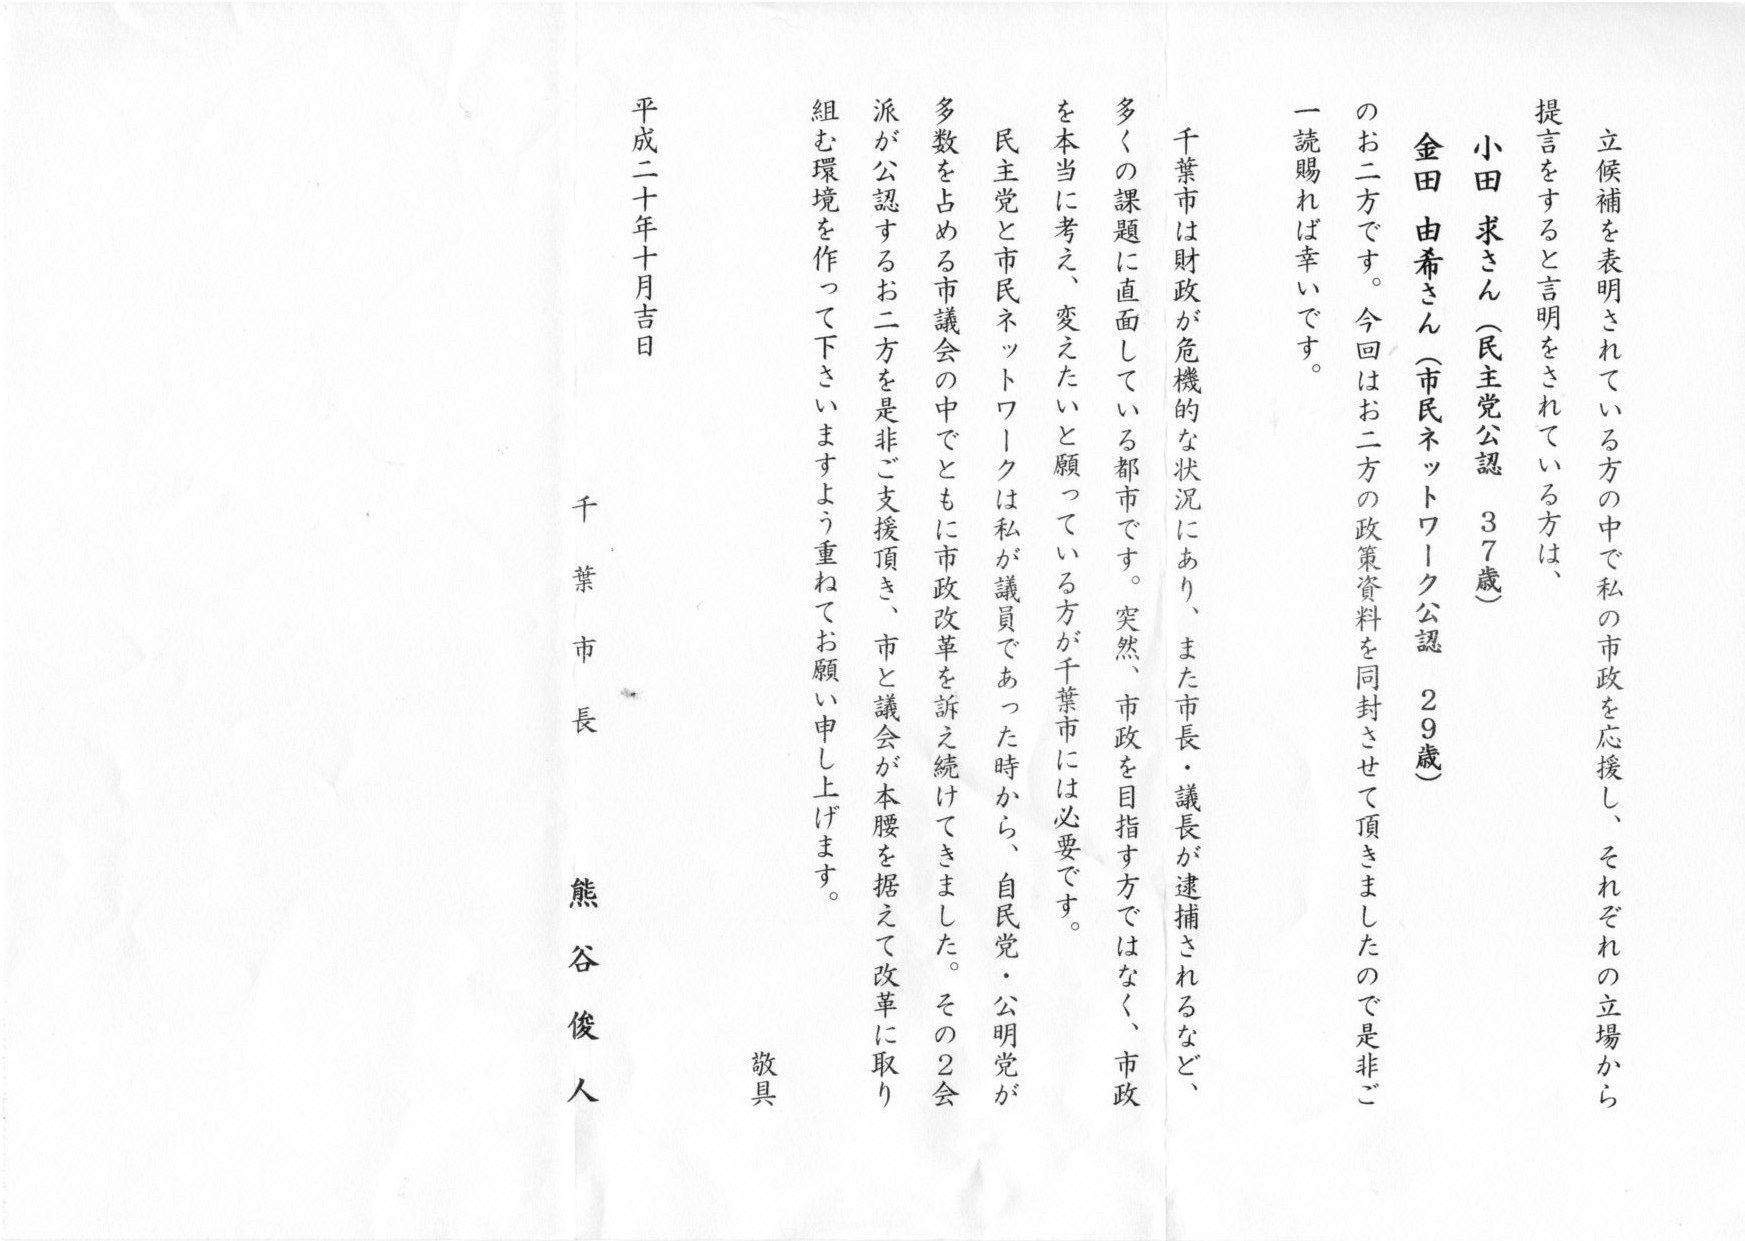 立候補を表明されている方の中で私の市政を応援し、それぞれの立場から
提言をすると言明をされている方は、
小田 求さん（民主党公認 37歳）
金田 由希さん（市民ネットワーク公認 29歳）
のお二方です。今回はお二方の政策資料を同封させて頂きましたので是非ご
一読賜れば幸いです。
千葉市は財政が危機的な状況にあり、また市長・議長が逮捕されるなど、
多くの課題に直面している都市です。突然、市政を目指す方ではなく、市政
を本当に考え、変えたいと願っている方が千葉市には必要です。
民主党と市民ネットワークは私が議員であった時から、自民党・公明党が
多数を占める市議会の中でともに市政改革を訴え続けてきました。その2会
派が公認するお二方を是非ご支援頂き、市と議会が本腰を据えて改革に取り
組む環境を作って下さいますよう重ねてお願い申し上げます。
敬具
平成二十年十月吉日
千葉市長 熊谷俊人